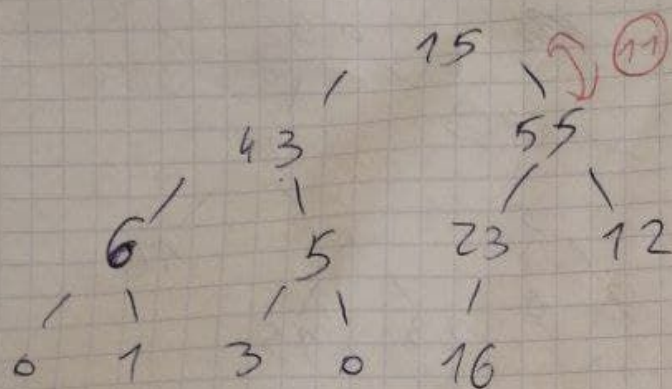 15 11
43 55
6 5 23 12
0 1 3 0 16